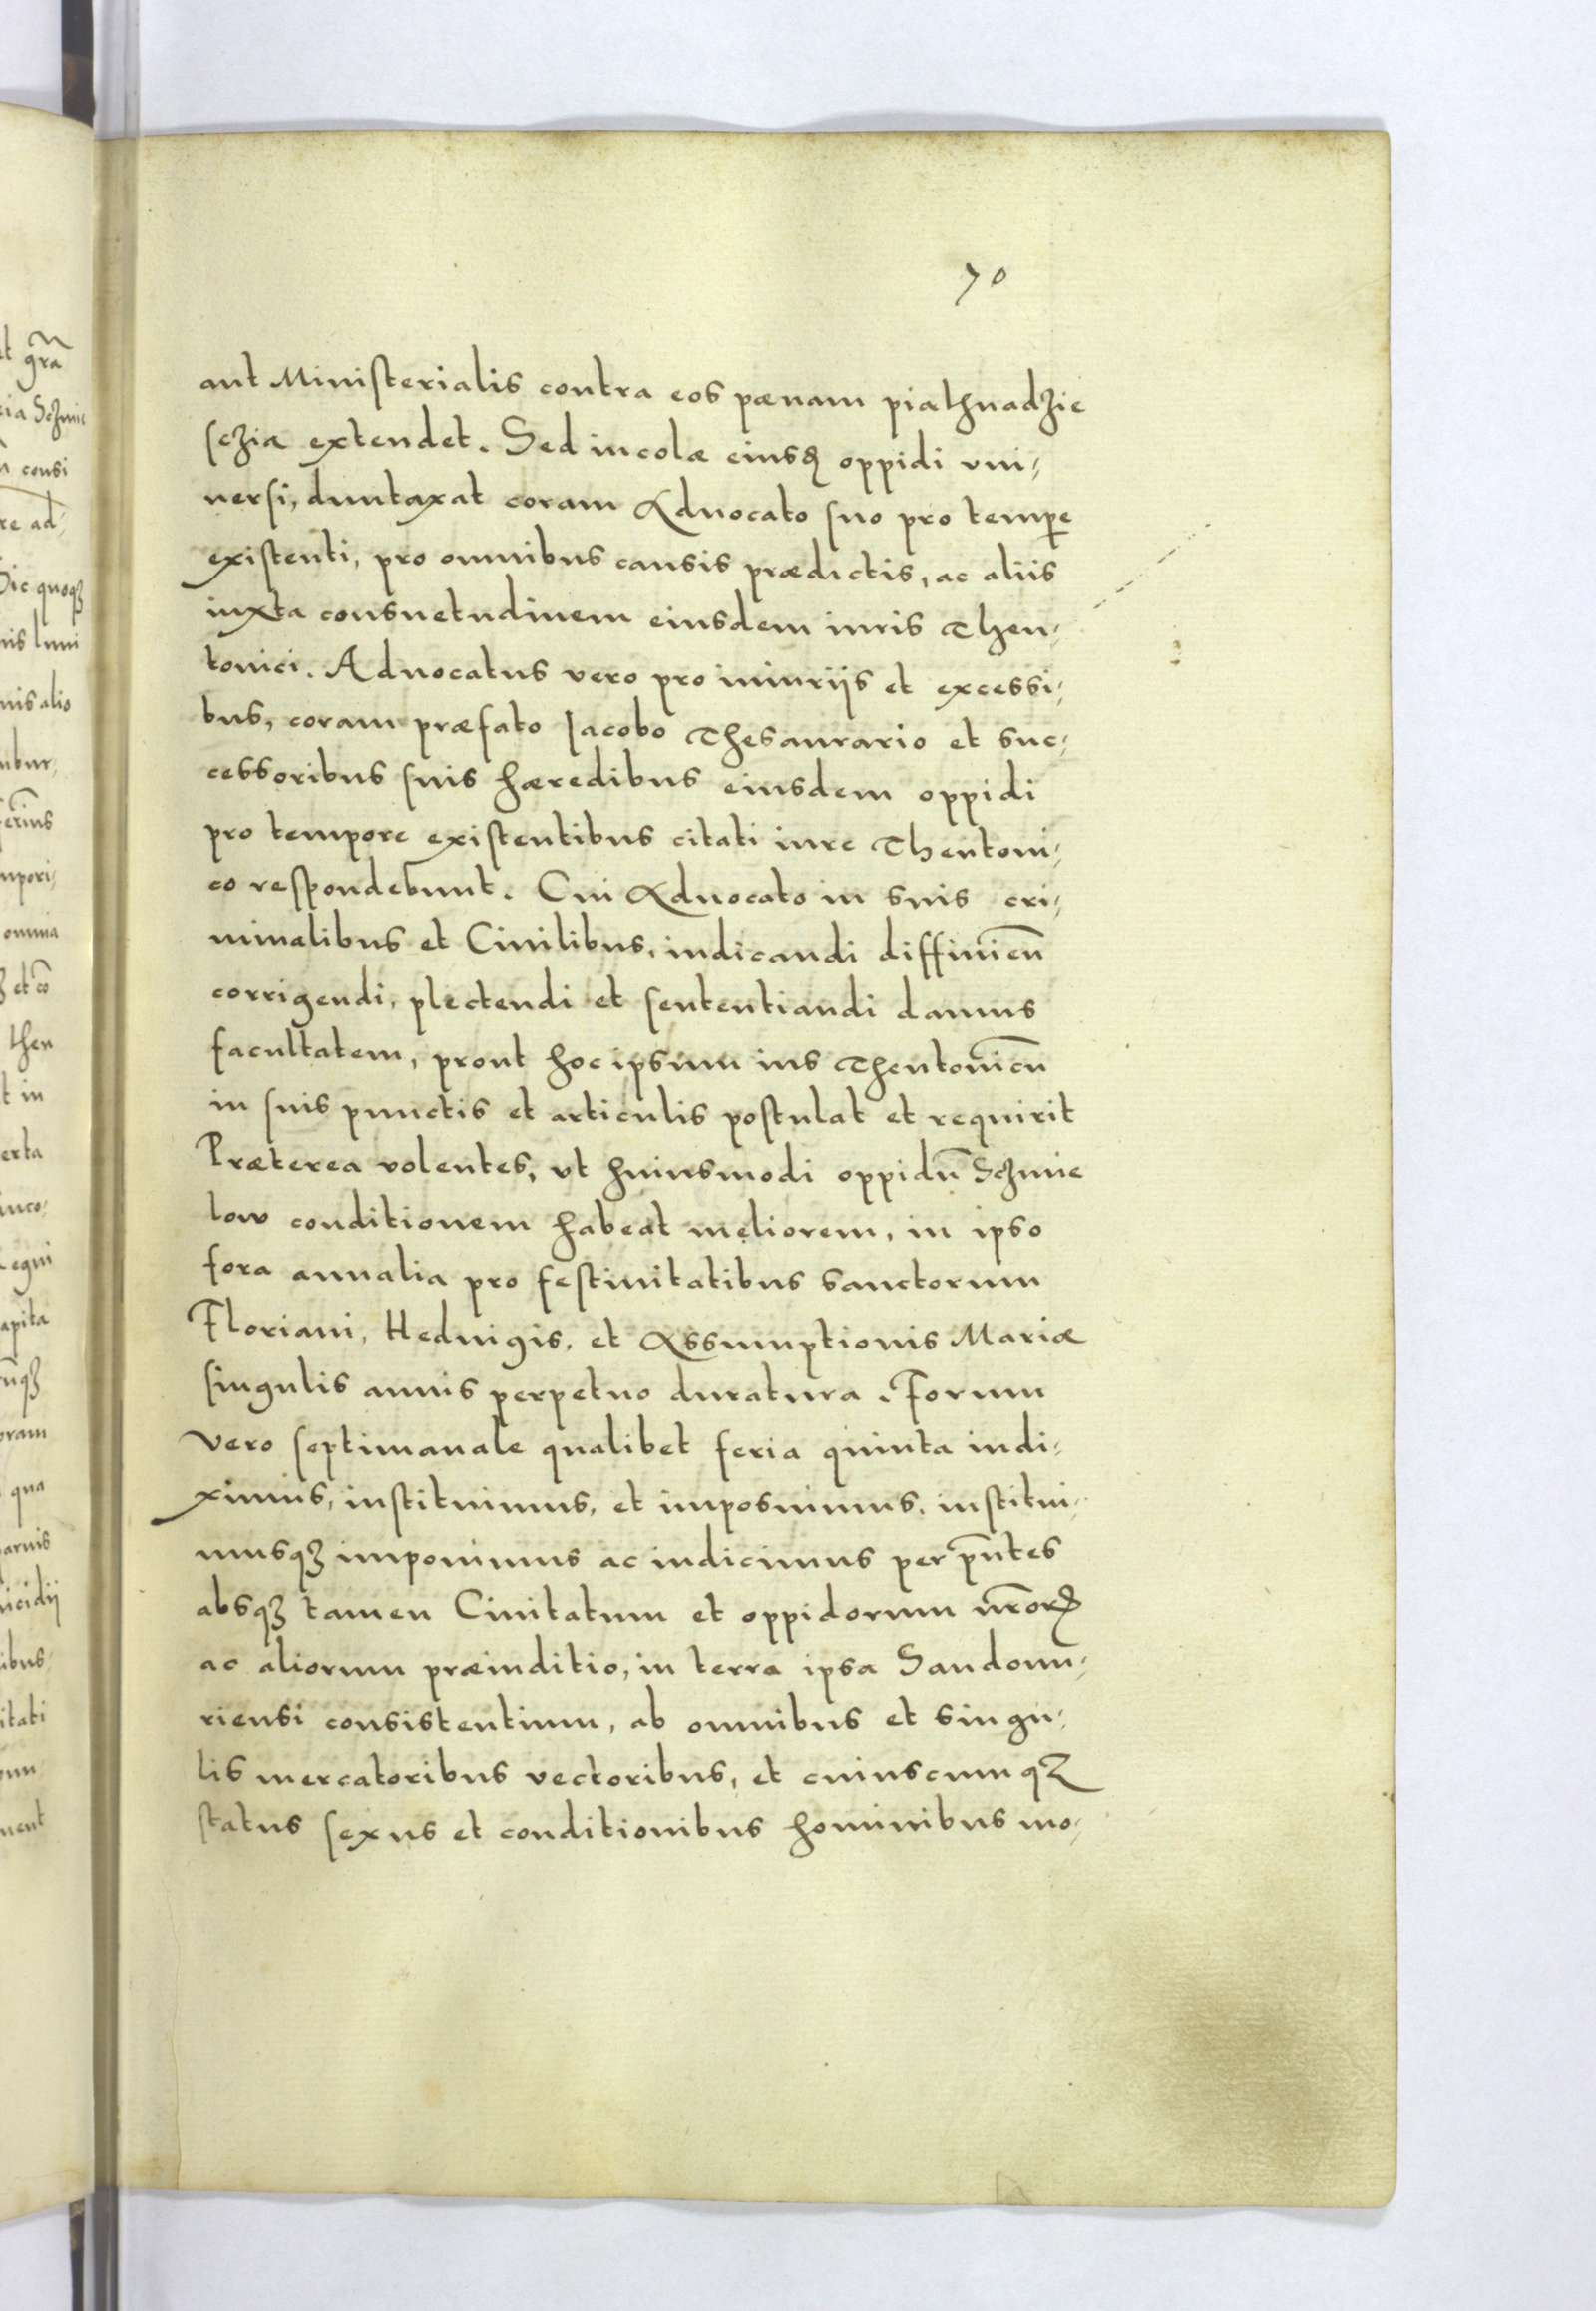 70
aut Ministerialis contra eos pœnam piathnadzie
sczia extendet. Sed incolæ eiusꝗ oppidi vni⸗
uersi, duntaxat coram Aduocato suo pro tempe
existenti, pro omnibus causis prædictis, ac aliis
iuxta consuetudinem eiusdem iuris Theu⸗
tonici. Aduocatus vero pro iniuriis et excessi⸗
bus, coram præfato Iacobo Thesaurario et suc⸗
cessoribus suis hæredibus eiusdem oppidi
pro tempore existentibus citati iure Theutoni⸗
co respondebunt. Cui Aduocato in suis cri⸗
minalibus et Ciuilibus, iudicandi diffiniēn
corrigendi, plectendi et sententiandi damus
facultatem, prout hoc ipsum ius Theutonicū
in suis punctis et articulis postulat et requirit
Præterea volentes, vt huiusmodi oppidū Sczmie
low conditionem habeat meliorem, in ipso
fora annalia pro festiuitatibus sanctorum
Floriani, Heduigis, et Assumptionis Mariæ
singulis annis perpetuo duratura. Forum
vero septimanale qualibet feria quinta indi⸗
ximus, instituimus, et imposuimus, institui⸗
musqꝫ imponimus ac indicimus per p̄ntes
absqꝫ tamen Ciuitatum et oppidorum nr̄orꝝ
ac aliorum præiuditio, in terra ipsa Sandomi⸗
riensi consistentium, ab omnibus et singu⸗
lis mercatoribus vectoribus, et cuiuscumqꝫ
status sexus et conditionibus hominibus mo⸗